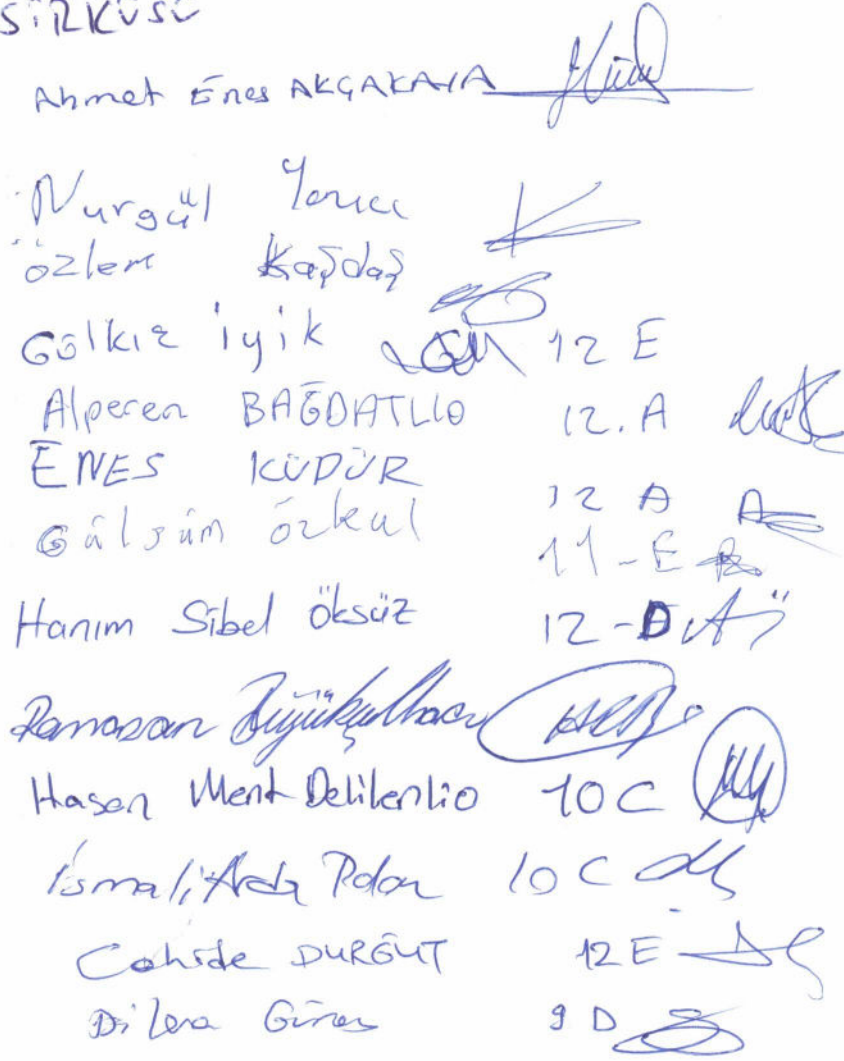 SİRKÜSÜ
Ahmet Enes AKÇAKAYA
Nurgül
Özlem Kaşdaş
Gülkız iyik 12 E
Alperen BAĞDATLIO 12.A
ENES KÜDÜR 12 A
Gülsüm özkul 11-E
Hanım Sibel Öksüz 12-D
Ramazan
Hasan Mert Delilerlio 10 C
İsmail Arda 10 C
Cahide DURGUT 12 E
Dilera Güneş 9 D